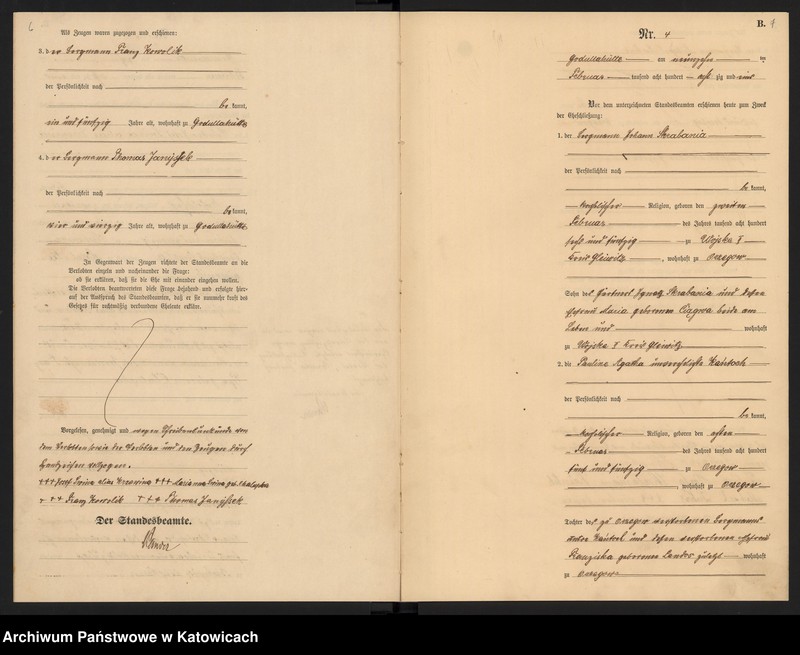 6
Als Zeugen waren zugezogen und erschienen:
3. der Bergmann Franz Kowolik
der Persönlichkeit nach
be kannt,
ein und fünfzig Jahre alt, wohnhaft zu Godullahütte
4. der Bergmann Thomas
der Persönlichkeit nach
be kannt,
vier und vierzig Jahre alt, wohnhaft zu Godullahütte
In Gegenwart der Zeugen richtete der Standesbeamte an die
Verlobten einzeln und nacheinander die Frage:
ob sie erklären, daß sie die Ehe mit einander eingehen wollen.
Die Verlobten beantworteten diese Frage bejahend und erfolgte hier-
auf der Ausspruch des Standesbeamten, daß er sie nunmehr kraft des
Gesetzes für rechtmäßig verbundene Eheleute erkläre.
Vorgelesen, genehmigt und wegen Schreibensunkunde von
dem Verlobten sowie der Verlobten und den Zeugen durch
Handzeichen vollzogen.
+++ Josef alias +++ Marianna geb.
+++ Franz Kowolik +++ Thomas
Der Standesbeamte.
B. 4
Nr. 4
Godullahütte am neunzehn ten
Februar tausend acht hundert acht zig und vier
Vor dem unterzeichneten Standesbeamten erschienen heute zum Zweck
der Eheschließung:
1. der Bergmann Johann Skrabania
der Persönlichkeit nach
be kannt,
katholischer Religion, geboren den zweiten
Februar des Jahres tausend acht hundert
sechs und fünfzig zu Wojska
Kreis Gleiwitz, wohnhaft zu Orzegow
Sohn des Gärtners Ignatz Skrabania und dessen
Ehefrau Maria geborenen beide am
Leben und wohnhaft
zu Wojska Kreis Gleiwitz
2. die Pauline Agatha unverehelichte Kantoch
der Persönlichkeit nach
be kannt,
katholischer Religion, geboren den achten
Februar des Jahres tausend acht hundert
fünf und fünfzig zu Orzegow
, wohnhaft zu Orzegow
Tochter des zu Orzegow verstorbenen Bergmanns
und dessen verstorbenen Ehefrau
Franziska geborenen zuletzt wohnhaft
zu Orzegow
Archiwum Państwowe w Katowicach